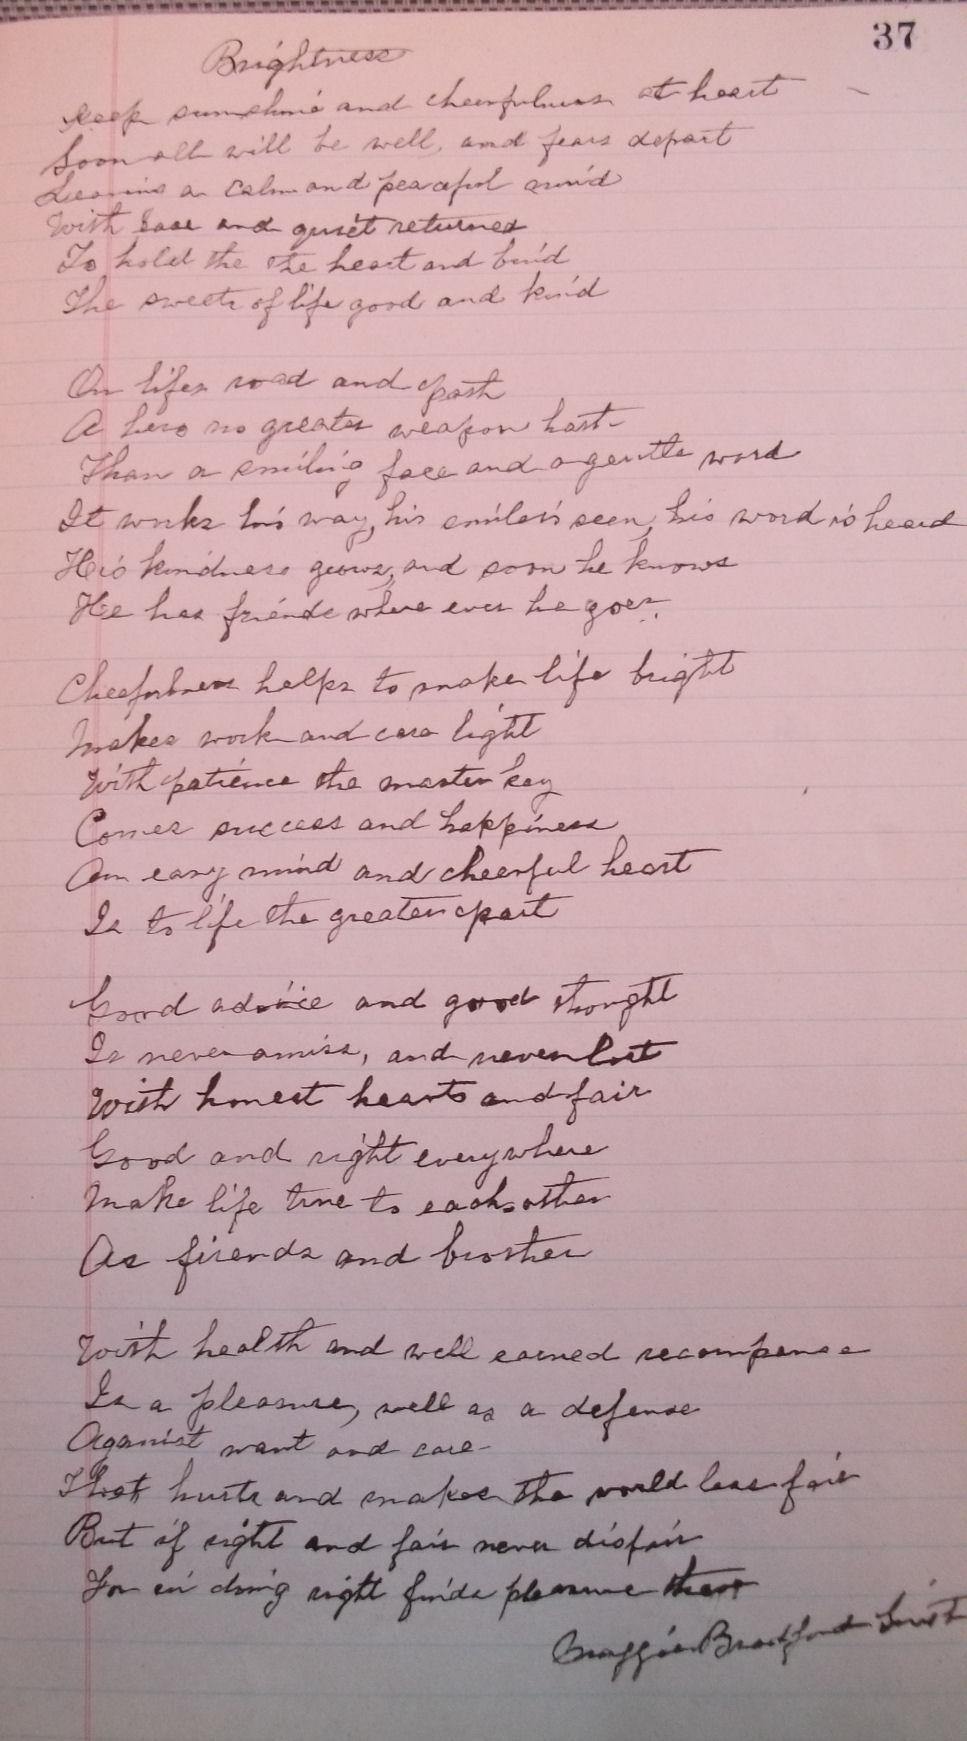 37
Brightness
Keep sunshine and cheerfulness at heart
Soon all will be well, and fears depart
Leaving a calm and peaceful mind
With ease and quiet returned
To hold the the heart and bind
The sweets of life good and kind
On lifes road and path
A hero no greater weapon hast
Than a smiling face and a gentle word
It works his way, his smile is seen, his word is heard
His kindness grows, and soon he knows
He has friends where ever he goes.
Cheefulness helps to make life bright
Makes work and care light
With patience the master key
Comes success and happiness
An easy mind and cheerful heart
Is to life the greater part
Good advice and good thought
Is never amiss, and never lost
With honest hearts and fair
Good and right everywhere
Make life true to each other
As firends and brother
With health and well earned recompense
Is a pleasure, well as a defense
Aganist want and care
That hurts and makes the world less fair
But if right and fair never dispair
For in doing right finds pleasure there
Maggie Bradford Smith